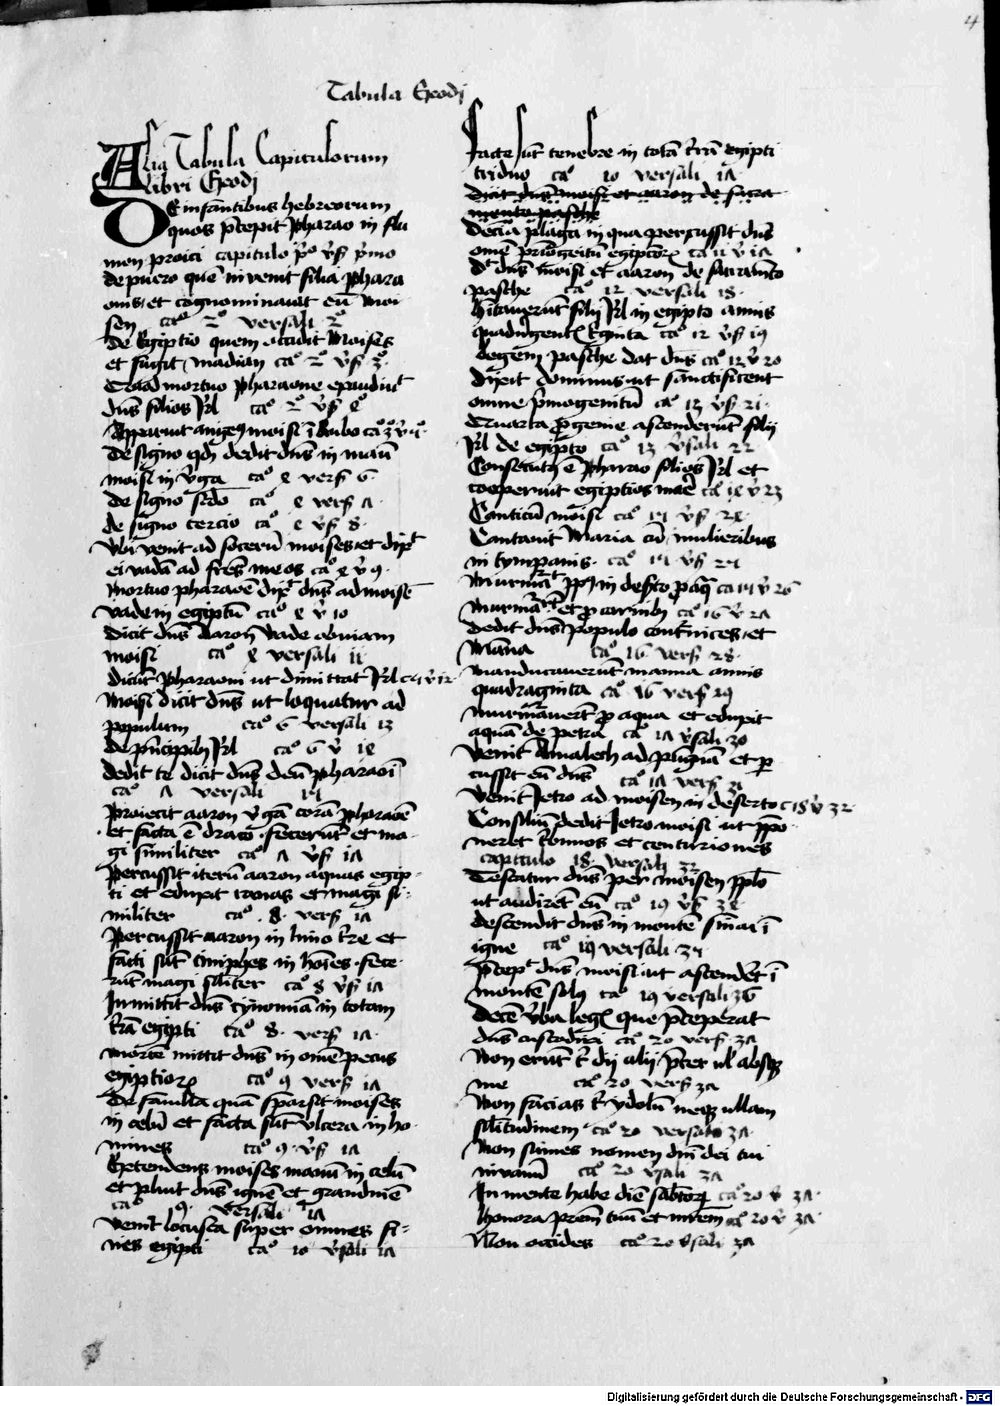 4
Tabula Exodj
Alia Tabula Capitulorum
libri Exodj
De infantibus hebreorum
quos p̄cepit pharao in flu
men proici capitulo p̄o v̄s p̄mo
de puero quē invenit filia phara
onis et cognominavit eū moi
sen ca° 2° versali 2°
De Egiptio quem occidit Moises
et fugit madian ca° 2° v̄s 3°
Quod mortuo pharaone exaudiut
dn̄s filios jrl ca° 2° v̄s 4°
Apparuit angel9 moisi ī Rubo ca° 3° v̄ 5°
De signo qd̄ dedit dn̄s in manū
moisi in v̄ga ca° 4 vers 6
de signo sc̄do ca° 4 vers 7
de signo tercio ca° 4 v̄s 8
Ubi venit ad socerū moises et dix͛t
ei vadā ad fr̄es meos ca° 4 v̄ 9
Mortuo pharaoē dix͛ dn̄s ad moisē
vade in egiptū ca° 4 v̄ 10
Dicit dn̄s Aaron vade obviam
moisi ca° 4 versali 11
dicūt pharaoni ut dimittat jrl c 5 v̄ 12
Moisi dicit dn̄s ut loquatur ad
populum ca° 6 versali 13
de p̄ncipib9 jrl ca° 6 v̄ 14
dedit te dicit dn̄s deū pharaoī
ca° 7 versali 15
Proiecit aaron v̄gā corā pharaoē
et facta ē draco fecerūt et ma
gi similiter ca° 7 v̄s 17
Percussit iterū aaron aquas egip
ti et eduxit ranas et magi si
militer ca° 8 vers 17
Percussit aaron in limo t̄re et
facti sūt ciniphes in hoīes fece
rūt magi sil̄iter ca° 8 v̄s 17
Inmittit dn̄s cynomiā in totam
t̄rā egipti ca° 8 vers 17
Mortē mittit dn̄s in om̄e pecus
egiptioꝝ ca° 9 vers 17
De favilla quā sparsit moises
in celū et facta sūt ulcera in ho
mines ca° 9 v̄s 17
Extendens moises manū in celū
et pluit dn̄s ignē et grandinē
ca° 9 versali 17
Venit locusta super omnes fi
nes egipti ca° 10 v̄sali 17
Facte sūt tenebre in totā t̄rā egipti
triduo ca° 10 versali 17
Dicit dn̄s moisi et aaron de sacra
mento pasche
Decīa plaga in qua percussit dn̄s
om̄e p̄mogeitū egiptioꝝ ca 11 v̄ 17
D͛t dn̄s moisi et aaron de sacramēto
pasche ca° 12 versali 18
Hītaverūt filij jrl in egipto annis
quadringent͛ tginta ca° 12 v̄s 19
Legem pasche dat dn̄s ca° 12 v̄ 20
Dixit dominus ut sanctificent
omne p̄mogenitū ca° 13 v̄s 21
Quarta p̄genie ascenderūt filij
jrl de egipto ca° 13 v̄sali 22
Consecut9 ē pharao filios jrl et
cooperuit egiptios mare ca° 14 v̄ 23
Canticū moisi ca° 15 v̄s 24
Cantavit Maria cū mulieribus
in tympanis ca° 15 v̄s 25
Murmāt ppl9 in deserto p aq̄ ca 15 v̄ 26
Murmāt et p carnib9 ca° 16 v̄ 27
Dedit dn̄s populo coturnices et
Manna ca° 16 vers 28
Manducaverūt manna annis
quadraginta ca° 16 vers 29
Murmaverūt p aqua et eduxit
aquā de petra ca° 17 v̄sali 30
Venit Amalech ad pugnā et p̱
cussit eū dn̄s ca° 17 vers 31
Venit Jetro ad moisen in deserto c 18 v̄ 32
Consiliū dedit Jetro moisi ut ppo
neret tbunos et centuriones
capitulo 18 versali 33
Testatur dn̄s per moisen pplo
ut audirēt eū ca° 19 v̄s 34
descendit dn̄s in montē sinai ī
igne ca° 19 versali 35
P̄cep͛t dn̄s moisi ut ascenderet ī
montē sol9 ca° 19 versali 36
Decē v̄ba leg͛ que p̄ceperat
dn̄s custodiri ca° 20 vers 37
Non erūt t dij alij p̄ter ul absq3
me ca° 20 vers 37
Non facias t ydolū neq3 ullam
sil̄itudinem ca° 20 versali 37
Non sumes nomen dn̄i dei tui
in vanū ca° 20 v̄sali 37
In mente habe diē sabbatoꝝ ca° 20 v̄ 37
Honora patrem tuū et mr̄em ca° 20 v̄ 37
Non occides ca° 20 v̄sali 37
Digitalisierung gefördert durch die Deutsche Forschungsgemeinschaft - DFG